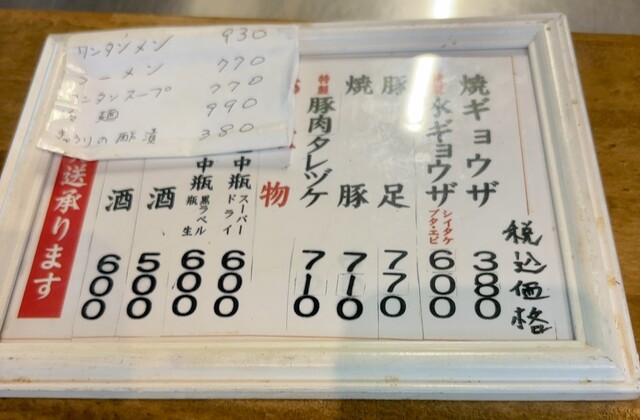 ワンタンメン 930
ラーメン 770
ワンタンスープ 770
麺 990
きゅうりの酢漬 380
税込価格
焼ギョウザ 380
水ギョウザ シイタケ ブタ・エビ 600
豚足 770
焼豚 710
特製 豚肉タレヅケ 710
物
中瓶 スーパードライ 600
中瓶 黒ラベル 瓶生 600
酒 500
酒 600
送承ります